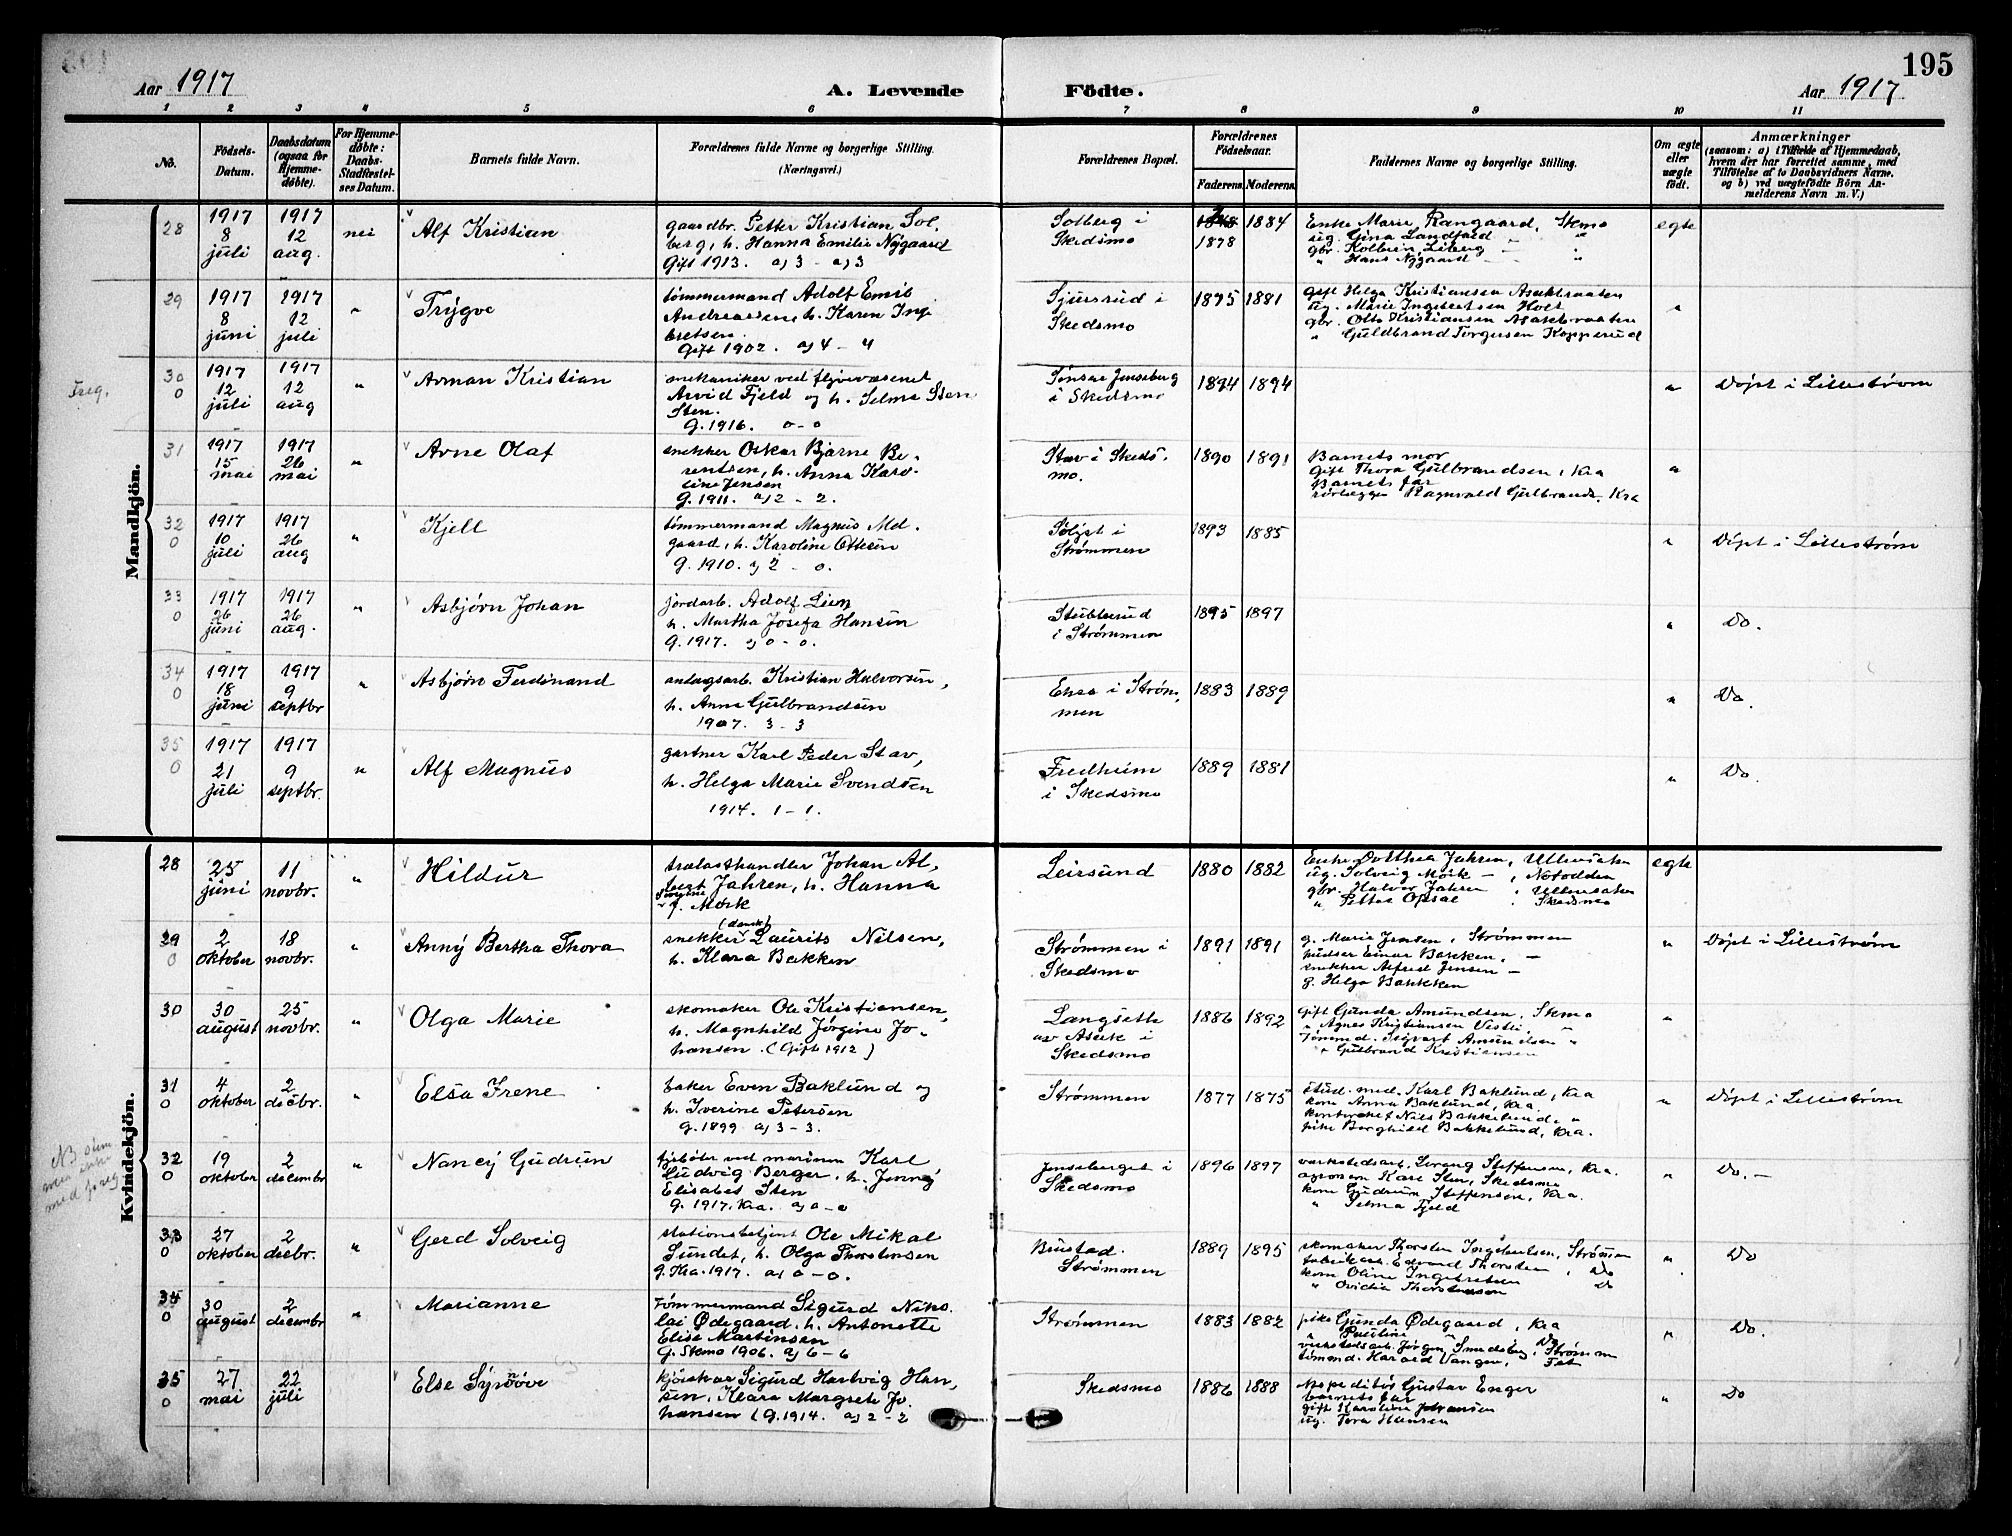 195
Aar 1917
A. Levende
Födte.
Aar 1917
1 2 3 4 5 6 7 8 9 10 11
No.
Födsels-
Datum.
Daabsdatum
(ogsaa for
Hjemme-
döbte).
For Hjemme-
döbte:
Daabs-
Stadfæstel-
ses Datum.
Barnets fulde Navn.
Forældrenes fulde Navne og borgerlige Stilling.
(Næringsvei.)
Forældrenes Bopæl.
Forældrenes
Födselsaar.
Faderens. Moderens.
Faddernes Navne og borgerlige Stilling.
Om ægte
eller
uægte
født.
Anmærkninger
(saasom: a) i Tilfælde af Hjemmedaab,
hvem der har forrettet samme, med
Tilføielse af to Daabsvidners Navne.
og b) ved uægtefödte Börn An-
melderens Navn m. V.)
Mandkjön.
28
1917
8
juli
1917
12
aug.
nei
Alf Kristian
gaardbr. Petter Kristian Sol
berg, h. Hanna Emilie Nygaard
Gift 1913. a) 3 - a) 3
Solberg i
Skedsmo
1878
1884
Enke Marie Rangaard, Skmo
ug. Gina Landfald "
gbr. Kolbein Liberg -
" Hans Nygaard - "
egte
29
1917
8
juni
1917
12
juli
"
Trygve
tømmermand Adolf Emil
Andreassen h. Karen Ing
bretsen.
Gift 1902. a) 4 - 4
Sjursrud i
Skedsmo
1875
1881
gift Helga Kristiansen Asakbraaten
ug. Marie Ingebertsen Holt
gbr. Otto Kristiansen Asakbraaten
" Guldbrand Torgersen Kopperud
"
30
0
1917
12
juli
1917
12
aug
"
Arman Kristian
mekaniker ved flyvevæsenet
Arvid Fjeld og h. Selma Sten
Sten.
G. 1916. 0-0
i Skedsmo
1894
1894
"
Døpt i Lillestrøm
31
1917
15
mai
1917
26
mai
"
Arne Olaf
snekker Oskar Bjarne Be-
rentsen, h. Anna Karo
line Jensen
G. 1911. a) 2 - 2.
Stav i Skeds-
mo.
1890
1891
Barnets mor
gift Thora Gulbrandsen, Kra
Barnets far
rørlægger Ragnvald Gulbrands. Kra
"
32
0
1917
10
juli
1917
26
aug
"
Kjell
tømmermand Magnus Md.
gaard, h. Karoline Ottesen
G. 1910. a) 2 - 0.
Sølyst i
Strømmen
1893
1885
"
Døpt i Lillestrøm
33
0
1917
26
juni
1917
26
aug.
"
Asbjørn Johan
jordarb. Adolf Lien
h. Martha Josefa Hansen
G. 1917. a) 0 - 0.
Stubberud
i Strømmen
1895
1897
"
Do.
34
0
1917
18
juni
1917
9
septbr
"
Asbjørn Ferdinand
anlagsarb. Kristian Halvorsen,
h. Anna Gulbrandsen
1907. 3 - 3
i Strøm
men
1883
1889
"
Do.
35
0
1917
21
juli
1917
9
septbr.
"
Alf Magnus
gartner Karl Peder Stav,
h. Helga Marie Svendsen
1914. 1 - 1.
Fredheim
i Skedsmo
1889
1881
"
Do.
Kvindekjön.
28
25
juni
11
novbr.
"
Hildur
trælasthandler Johan Al,
bert Jahren, h. Hanna
f. Mørk
Leirsund
1880
1882
Enke Dorthea Jahren, Ullensaker
ug. Solveig Mørk - , Notodden
gbr. Halvor Jahren , Ullensaker
" Petter Opsal , Skedsmo
egte
29
0
2
oktober
18
novbr.
"
Anny Bertha Thora
(dansk)
snekker Laurits Nilsen,
h. Klara Bakken
Strømmen i
Skedsmo
1891
1891
g. Marie Jensen, Strømmen
pudser Einar Bakken, -
snekker Alfred Jensen -
g. Helga Bakken
"
Døpt i Lillestrøm
30
30
august
25
novbr.
"
Olga Marie
skomaker Ole Kristiansen,
h. Magnhild Jørgine Jo-
hansen. (Gift 1912)
Langseth
av Asak i
Skedsmo
1886
1892
Gift Gunda Amundsen, Skmo
" Agnes Kristiansen Vestli, "
Tømmd. Sigvart Amundsen "
" Gulbrand Kristiansen
"
31
0
4
oktober
2
decbr.
"
Elsa Irene
baker Even Baklund og
h. Iverine Petersen
G. 1899 a) 3 - 3.
Strømmen
1877
1875
stud. med. Karl Baklund, Kra
kone Anna Baklund, Kra.
kontorchef Nils Bakkelund, "
pike Borghild Bakkelund, Kra.
"
Døpt i Lillestrøm
32
0
19
oktober
2
decembr
"
Nancy Gudrun
fyrbøter ved marinen Karl
Ludvig Berger, h. Jenny
Elisabet Sten
G. 1917. Kra. a) 0 - 0
Jonseberget i
Skedsmo
1896
1897
verkstedsarb. Steffensen, Kra.
agronom Kare Sten, Skedsmo
kone Gudrun Steffensen, Kra.
" Selma Fjeld
"
Do. -
33
0
27
oktober
2
decbr.
"
Gerd Solveig
stationsbetjent Ole Mikal
Sundet, h. Olga Thorstensen
G. Kra. 1917. a) 0 - 0.
Bustad.
Strømmen
1889
1895
skomaker Thorsten Ingebretsen, Strømmen
fabrikarb. Edvard Thorsten , Do
kone Oline Ingebretsen Do
" Ovidia Thorstensen
"
Do
34
0
30
august
2
decembr
"
Marianne
Tømmermand Sigurd Niko
lai Ødegaard, h. Antonette
Elise Martinsen
G. Skmo 1906. a) 6 - 6
Strømmen
1883
1882
pike Gunda Ødegaard, Kra
" Pauline " Do
verkstedsarb. Jørgen Smedsberg, Strømm
tømmd. Harald Vangen, Fet
"
Do.
35
0
27
mai
22
juli
Else Synnøve
Sigurd Hartvig Han,
sen, Klara Margrete Jo.
hansen (G. 1914. a) 2 - 2
Skedsmo
1886
1888
Gustav Enger
barnets far
gift Karoline Johansen
ug. Tora Hansen
"
Do